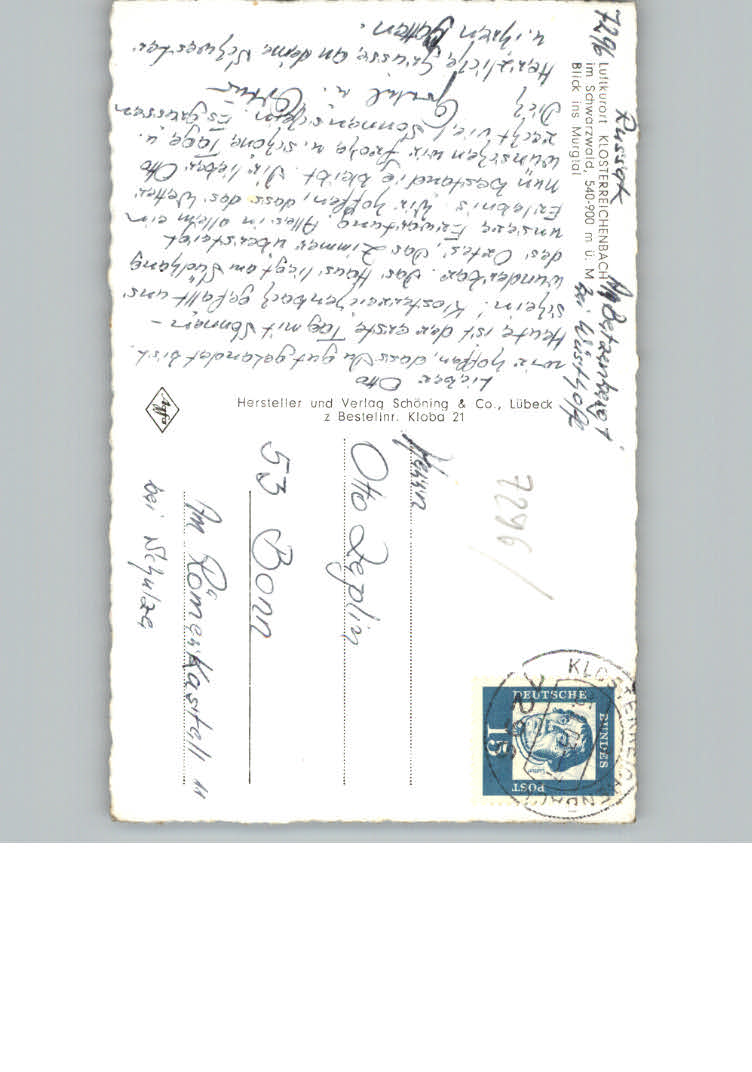 7296
Luftkurort KLOSTERREICHENBACH
im Schwarzwald, 540-900 m ü. M
Blick ins Murgtal
Russek
Am Betzenbergt
bei Wüsthofe
Lieber Otto
wir hoffen, dass Du gut gelandet bist.
Heute ist der erste Tag mit Sonnen-
schein. Klosterreichenbach gefällt uns
wunderbar. Das Haus liegt am Südhang
des Ortes, das Zimmer übersteigt
unsere Erwartung. Alles in allem ein
Erlebnis. Wir hoffen, dass das Wetter
nun beständig bleibt. Dir, lieber Otto
wünschen wir frohe u. schöne Tage, u.
recht viel Sonnenschein. Es grüssen
Dich
u.
Herzliche Grüsse an deine Schwester
u. ihren Gatten.
Hersteller und Verlag Schöning & Co., Lübeck
z Bestellnr. Kloba 21
Agfa
7296/
Herrn
Otto Zeplin
53 Bonn
Am Römerkastell 11
bei Schulze
KLOSTERREICHENBACH
DEUTSCHE
BUNDES
POST
15
Luther